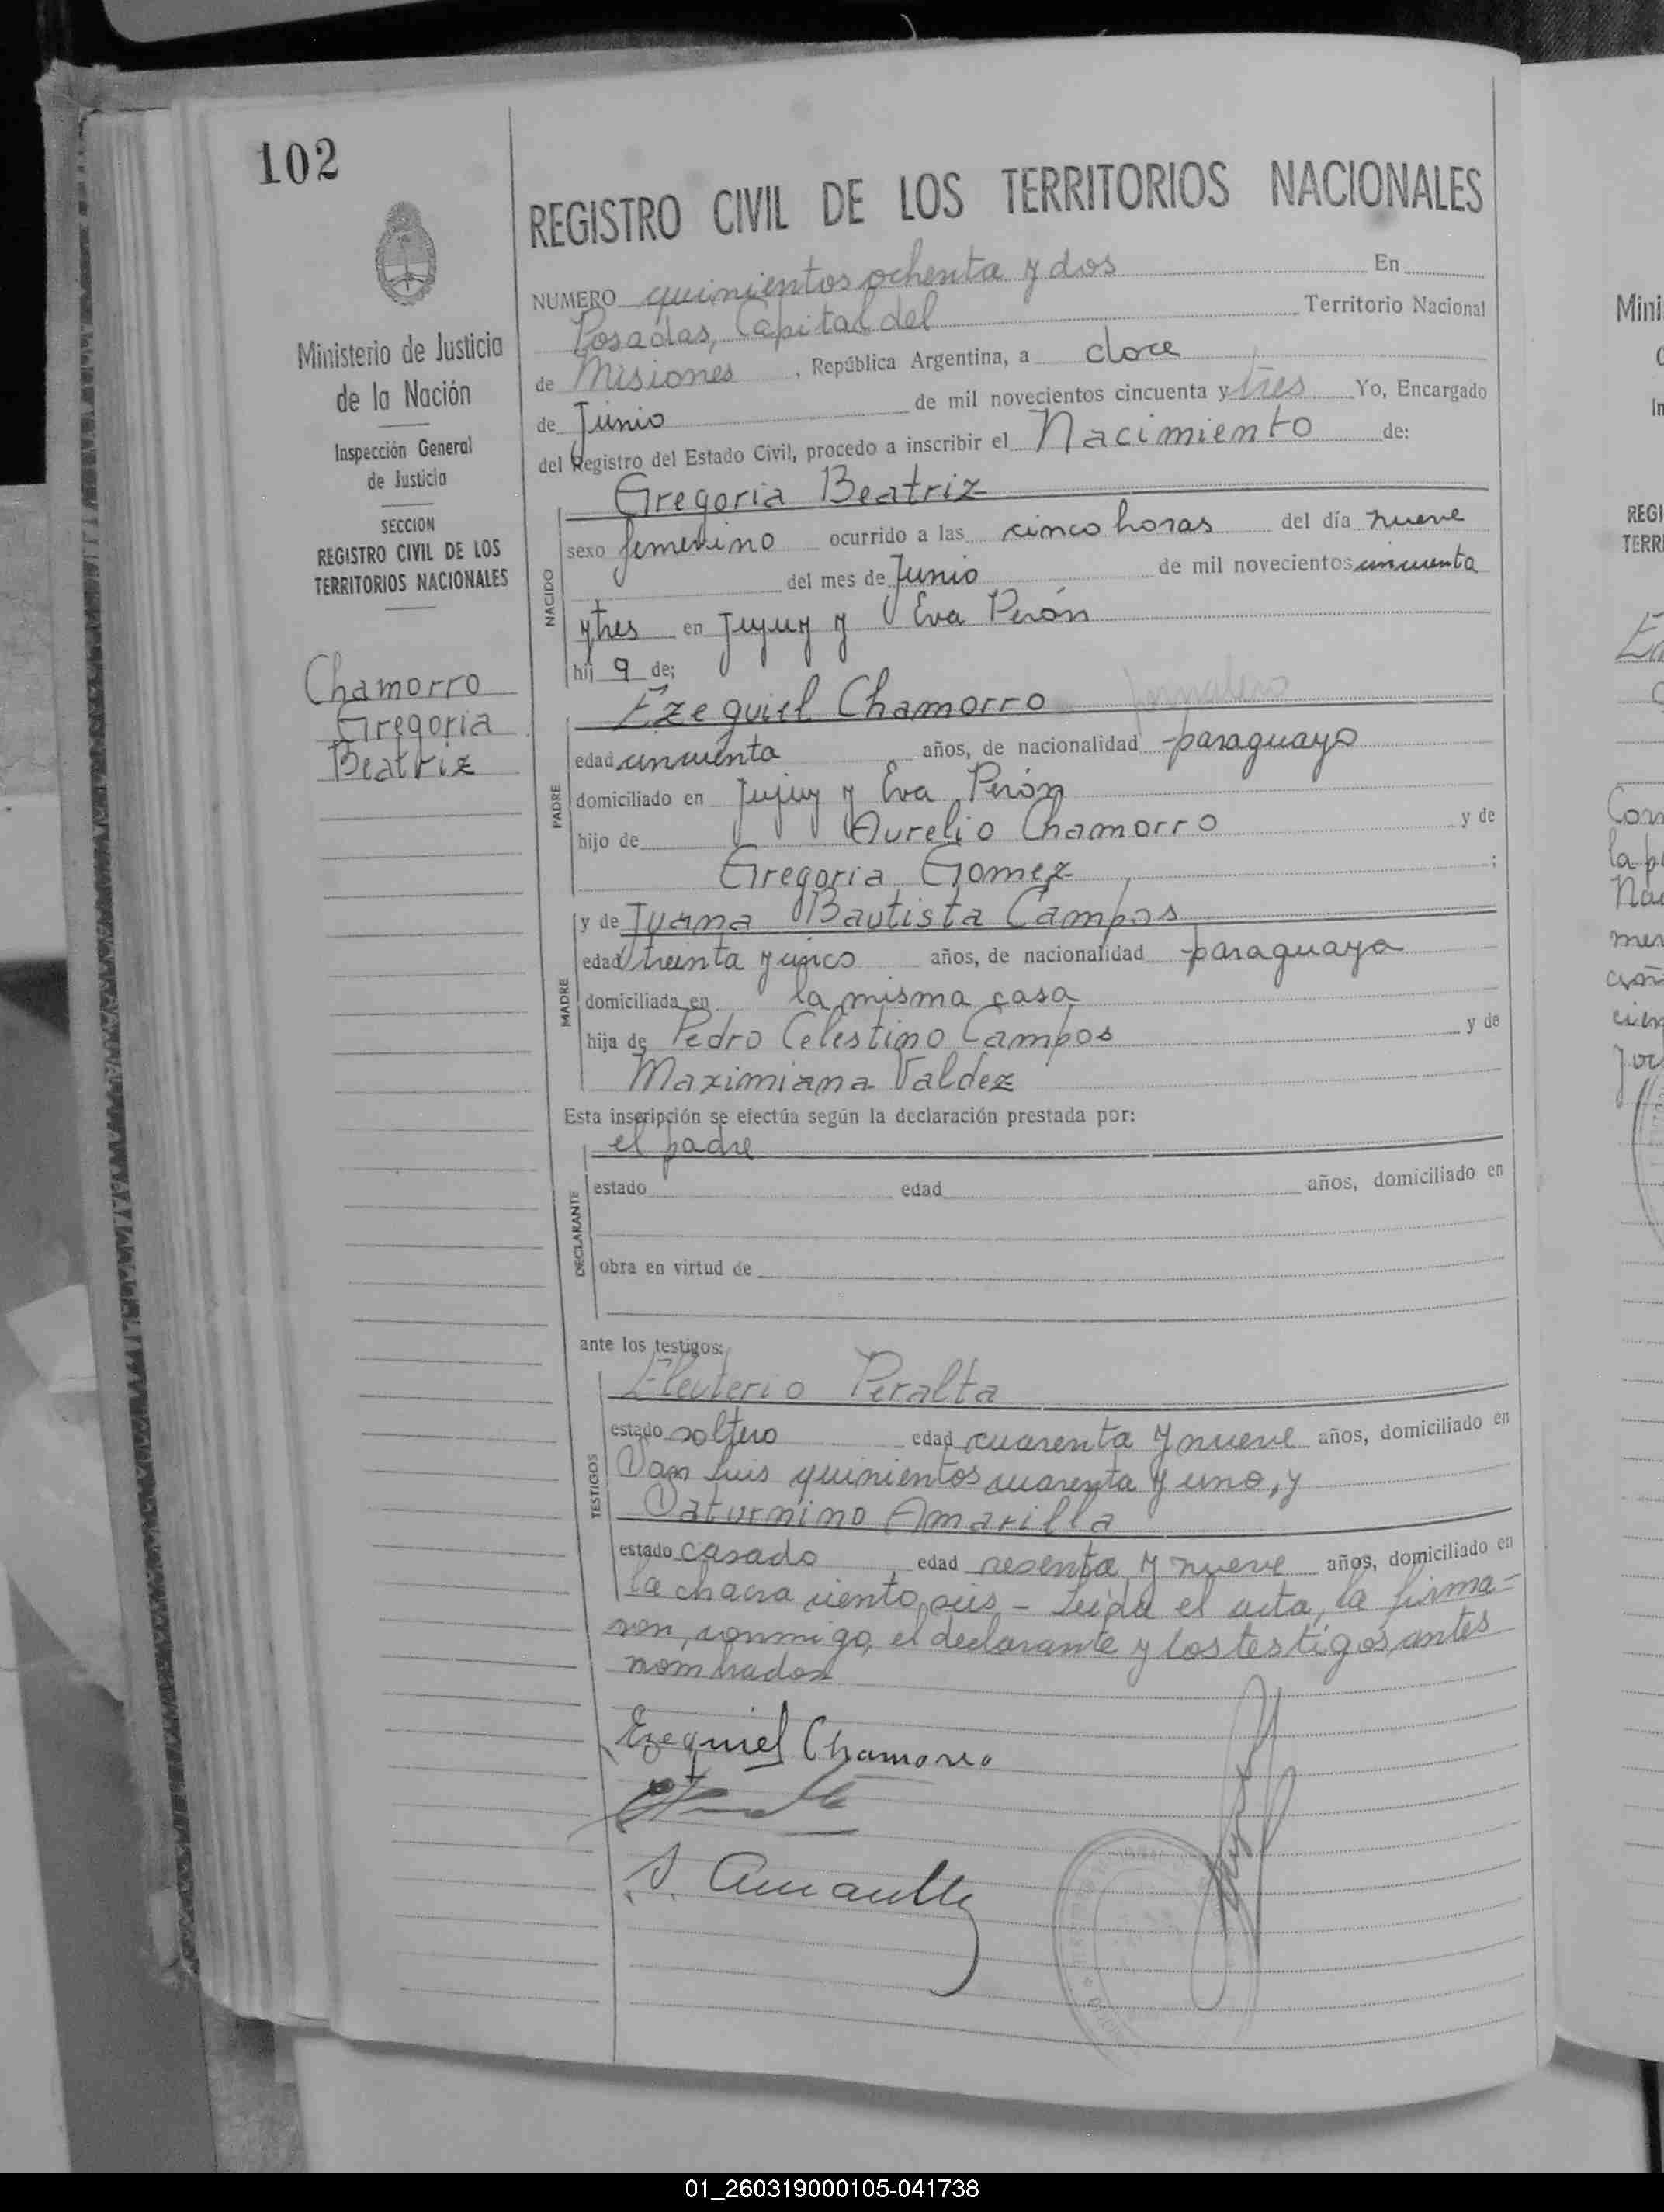 102
REGISTRO CIVIL DE LOS TERRITORIOS NACIONALES
NUMERO quinientos ochenta y dos En
Posadas, Capital del Territorio Nacional
de Misiones, República Argentina, a doce
de Junio de mil novecientos cincuenta y tres Yo, Encargado
del Registro del Estado Civil, procedo a inscribir el Nacimiento de:
Ministerio de Justicia
de la Nación
Inspección General
de Justicia
SECCION
REGISTRO CIVIL DE LOS
TERRITORIOS NACIONALES
Chamorro
Gregoria
Beatriz
NACIDO
Gregoria Beatriz
sexo femenino ocurrido a las cinco horas del día nueve
del mes de Junio de mil novecientos cincuenta
y tres en Jujuy y Eva Perón
hij a de;
PADRE
Ezequiel Chamorro jornalero
edad cincuenta años, de nacionalidad paraguayo
domiciliado en Jujuy y Eva Perón
hijo de Aurelio Chamorro y de
Gregoria Gomez ;
MADRE
y de Juana Bautista Campos
edad treinta y cinco años, de nacionalidad paraguaya
domiciliada en la misma casa
hija de Pedro Celestino Campos y de
Maximiana Valdez
Esta inscripción se efectúa según la declaración prestada por:
DECLARANTE
el padre
estado edad años, domiciliado en
obra en virtud de
ante los testigos:
TESTIGOS
Eleuterio Peralta
estado soltero edad cuarenta y nueve años, domiciliado en
San Luis quinientos cuarenta y uno, y
Saturnino Amarilla
estado casado, edad sesenta y nueve años, domiciliado en
la chacra ciento seis - Leida el acta, la firma=
ron, conmigo, el declarante y los testigos, antes
nombrados
Ezequiel Chamorro
S. Amarilla
Mini
REGI
TERR
01_260319000105-041738